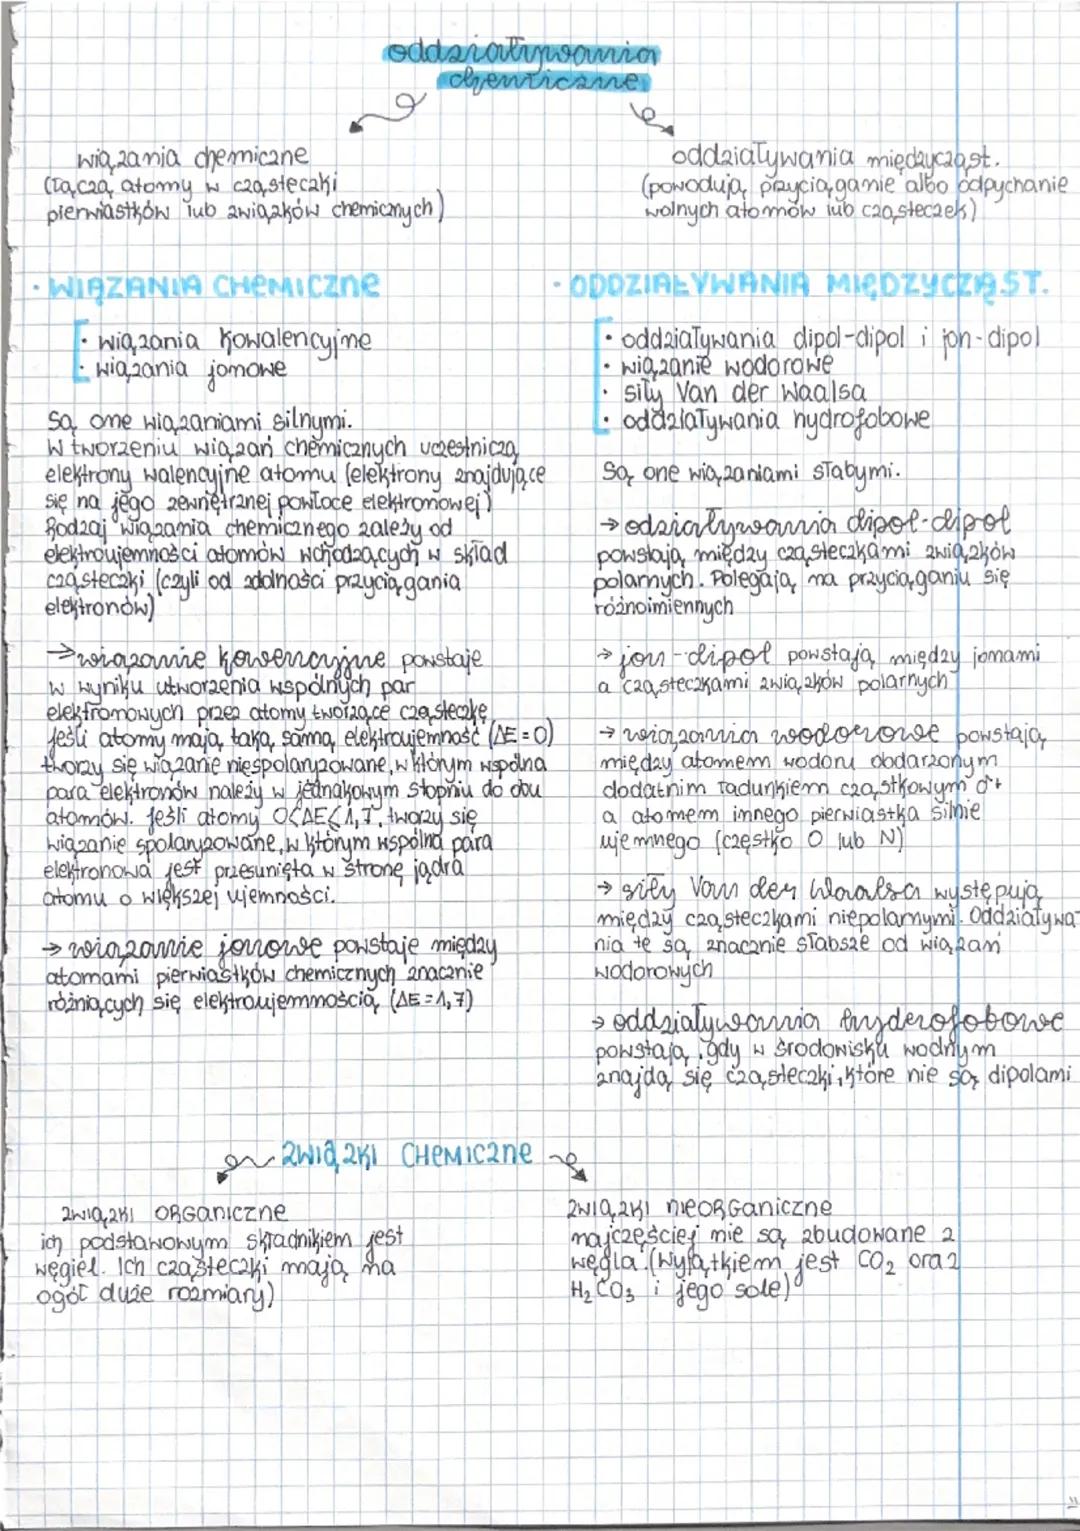 oddziaływania
chemiczne
wiązania chemiczne
(łączą atomy w cząsteczki
pierwiastków lub związków chemicznych)
oddziaływania międzycząst.
(powodują przyciąganie albo odpychanie
wolnych atomów lub cząsteczek)
· WIĄZANIA CHEMICZNE
· wiązania kowalencyjne
· wiązania jonowe
Są one wiązaniami silnymi.
W tworzeniu wiązań chemicznych uczestniczą
elektrony walencyjne atomu (elektrony znajdujące
się na jego zewnętrznej powłoce elektronowej)
Rodzaj wiązania chemicznego zależy od
elektroujemności atomów wchodzących w skład
cząsteczki (czyli od zdolności przyciągania
elektronów)
→ wiązanie kowencyjne powstaje
w wyniku utworzenia wspólnych par
elektronowych przez atomy tworzące cząsteczkę
Jeśli atomy mają taką samą elektroujemność (ΔE=0)
tworzy się wiązanie niespolaryzowane, w którym wspólna
para elektronów należy w jednakowym stopniu do obu
atomów. Jeśli atomy 0<ΔE<1,7, tworzy się
wiązanie spolaryzowane, w którym wspólna para
elektronowa jest przesunięta w stronę jądra
atomu o większej ujemności.
→ wiązanie jonowe powstaje między
atomami pierwiastków chemicznych znacznie
różniących się elektroujemnością (ΔE=1,7)
· ODDZIAŁYWANIA MIĘDZYCZĄST.
· oddziaływania dipol-dipol i jon-dipol
· wiązanie wodorowe
· siły Van der Waalsa
· oddziaływania hydrofobowe
Są one wiązaniami słabymi.
→ odziaływania dipol-dipol
powstają między cząsteczkami związków
polarnych. Polegają na przyciąganiu się
różnoimiennych
→ jon-dipol powstają między jonami
a cząsteczkami związków polarnych
→ wiązania wodorowe powstają
między atomem wodoru obdarzonym
dodatnim ładunkiem cząstkowym δ+
a atomem innego pierwiastka silnie
ujemnego (częstko O lub N)
→ siły Van der Waalsa występują
między cząsteczkami niepolarnymi. Oddziaływa-
nia te są znacznie słabsze od wiązań
wodorowych
→ oddziaływania hyderofobowe
powstają, gdy w środowisku wodnym
znajdą się cząsteczki, które nie są dipolami
ZWIĄZKI CHEMICZNE
ZWIĄZKI ORGANICZNE
ich podstawowym składnikiem jest
węgiel. Ich cząsteczki mają na
ogół duże rozmiary)
ZWIĄZKI NIEORGANICZNE
najczęściej nie są zbudowane z
węgla (wyjątkiem jest CO₂ oraz
H₂CO₃ i jego sole)